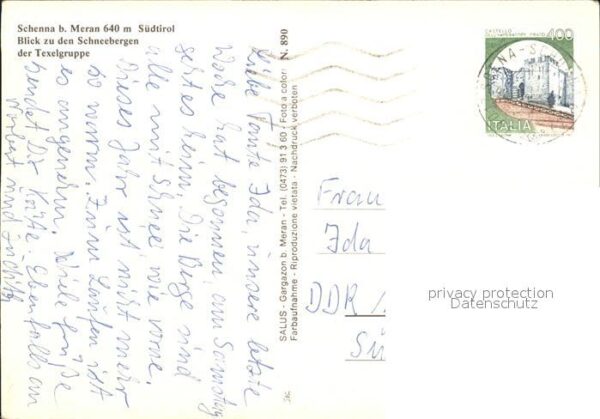 Schenna b. Meran 640 m Südtirol
Blick zu den Schneebergen
der Texelgruppe
Liebe Tante Ida, unsere letzte
Woche hat begonnen, am Samstag
geht es heim. Die Berge sind
alle mit Schnee wie vorne.
Dieses Jahr ist nicht mehr
so warm. Zum Laufen ist
es angenehm. Viele Grüße
sendet Dir Käthe Ebenfalls an
Norbert und
SALUS - Gargazon b. Meran - Tel. (0473) 91 3 60 - Foto a colori N. 890
Farbaufnahme - Riproduzione vietata - Nachdruck verboten
CASTELLO
400
ITALIA
Frau
Ida
DDR
privacy protection
Datenschutz